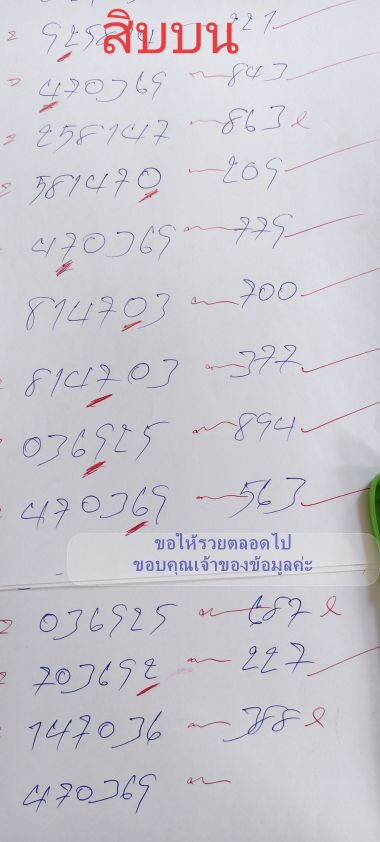 สิบบน
925814 221
470369 843
258147 863 l
581470 209
470369 779
814703 700
814703 377
036925 894
470369 563
ขอให้รวยตลอดไป
ขอบคุณเจ้าของข้อมูลค่ะ
036925 687 l
703692 227
147036 388 l
470369